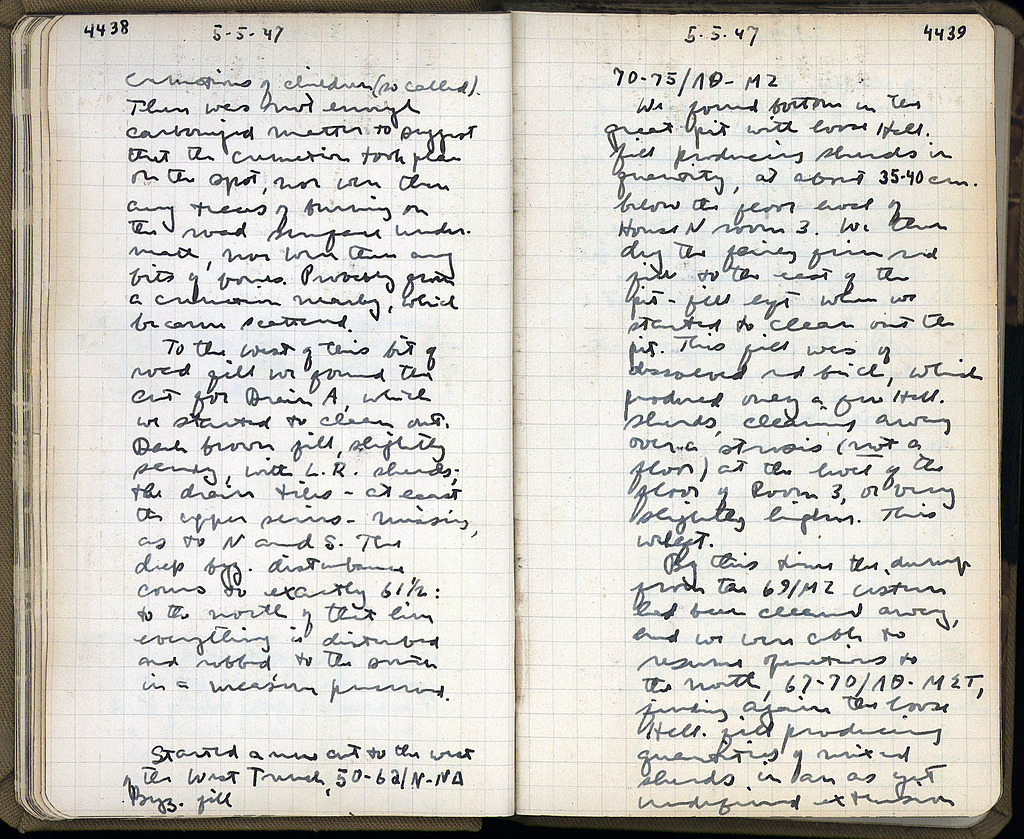 4438
5-5-47
cremations of children (so called).
There was not enough
carbonized matter to suggest
that the cremation took place
on the spot, nor were there
any traces of burning on
the road surface under-
neath, nor were there any
bits of bones. Probably from
a cremation nearby, which
became scattered.
To the west of this bit of
road fill we found the
cut for Drain A, which
we started to clean out.
Dark brown fill, slightly
sandy, with L.R. sherds;
the drain tiles – at least
the upper series – missing,
as to N and S. The
deep byz. disturbance
comes to exactly 61½:
to the north of that line
everything is disturbed
and robbed to the south
in a measure preserved.
Started a new cut to the west
of the West Trench, 50-62/N-NA
Byz. fill
5.5.47
4439
70-75/ΛΘ-ΜΖ
We found bottom in the
great pit with loose Hell.
fill producing sherds in
quantity, at about 35-40 cm.
below the floor level of
House N room 3. We then
dug the fairly firm red
fill to the east of the
pit - fill left when we
started to clean out the
pit. This fill was of
dissolved red brick, which
produced only a few Hell.
sherds, clearing away
over a strosis (not a
floor) at the level of the
floor of Room 3, or very
slightly higher. This
we left.
By this time the dump
from the 69/ΜΖ cistern
had been cleared away,
and we were able to
resume operations to
the north, 67-70/ΛΘ-ΜΣΤ,
finding again the loose
Hell. fill producing
quantities of mixed
sherds in an as yet
undefined extension